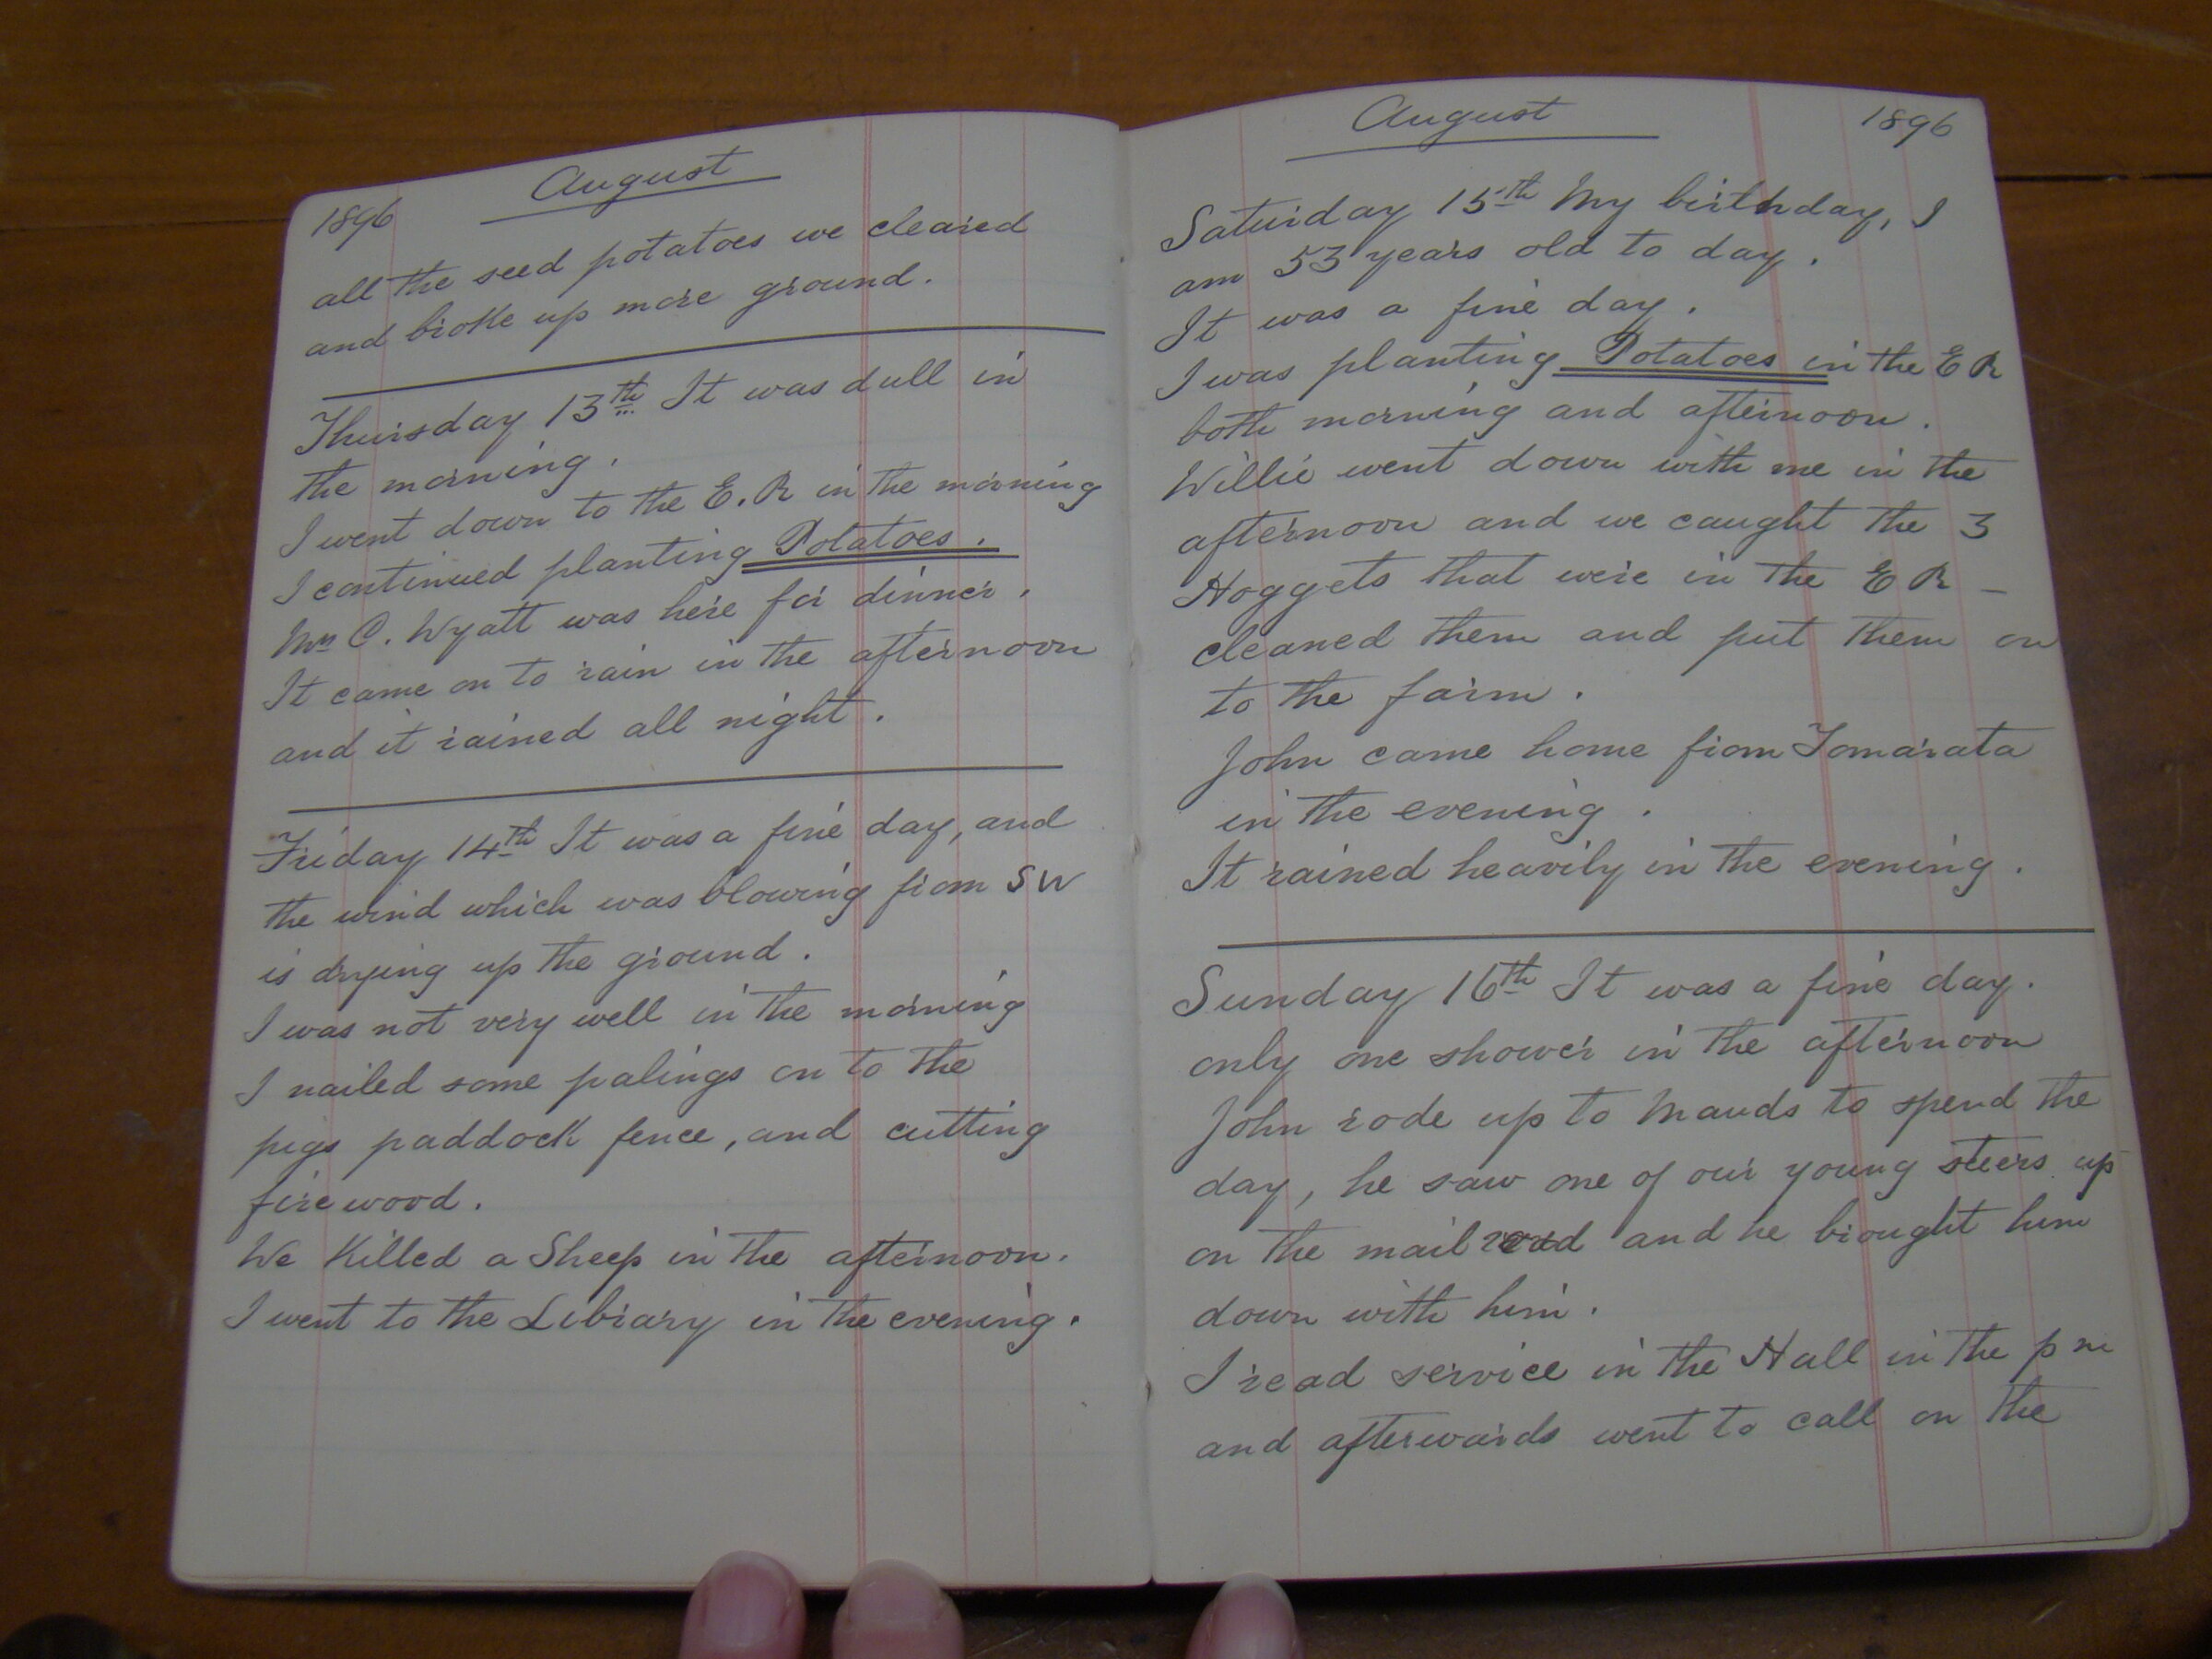 1896 August
all the seed potatoes we cleared
and broke up more ground.
Thursday 13th It was dull in
the morning.
I went down to the E. R in the morning
I continued planting Potatoes.
Mrs C. Wyatt was here for dinner.
It came on to rain in the afternoon
and it rained all night.
Friday 14th It was a fine day, and
the wind which was blowing from SW
is drying up the ground.
I was not very well in the morning
I nailed some palings on to the
pigs paddock fence, and cutting
firewood.
We Killed a Sheep in the afternoon.
I went to the Library in the evening.
August 1896
Saturday 15th My birthday, I
am 53 years old to day.
It was a fine day.
I was planting Potatoes in the E R
both morning and afternoon.
Willie went down with me in the
afternoon and we caught the 3
Hoggets that were in the E R -
cleaned them and put them on
to the farm.
John came home from Tomarata
in the evening.
It rained heavily in the evening.
Sunday 16th It was a fine day.
only one shower in the afternoon
John rode up to Mauds to spend the
day, he saw one of our young steers up
on the mail road and he brought him
down with him.
I read service in the Hall in the p m
and afterwards went to call on the